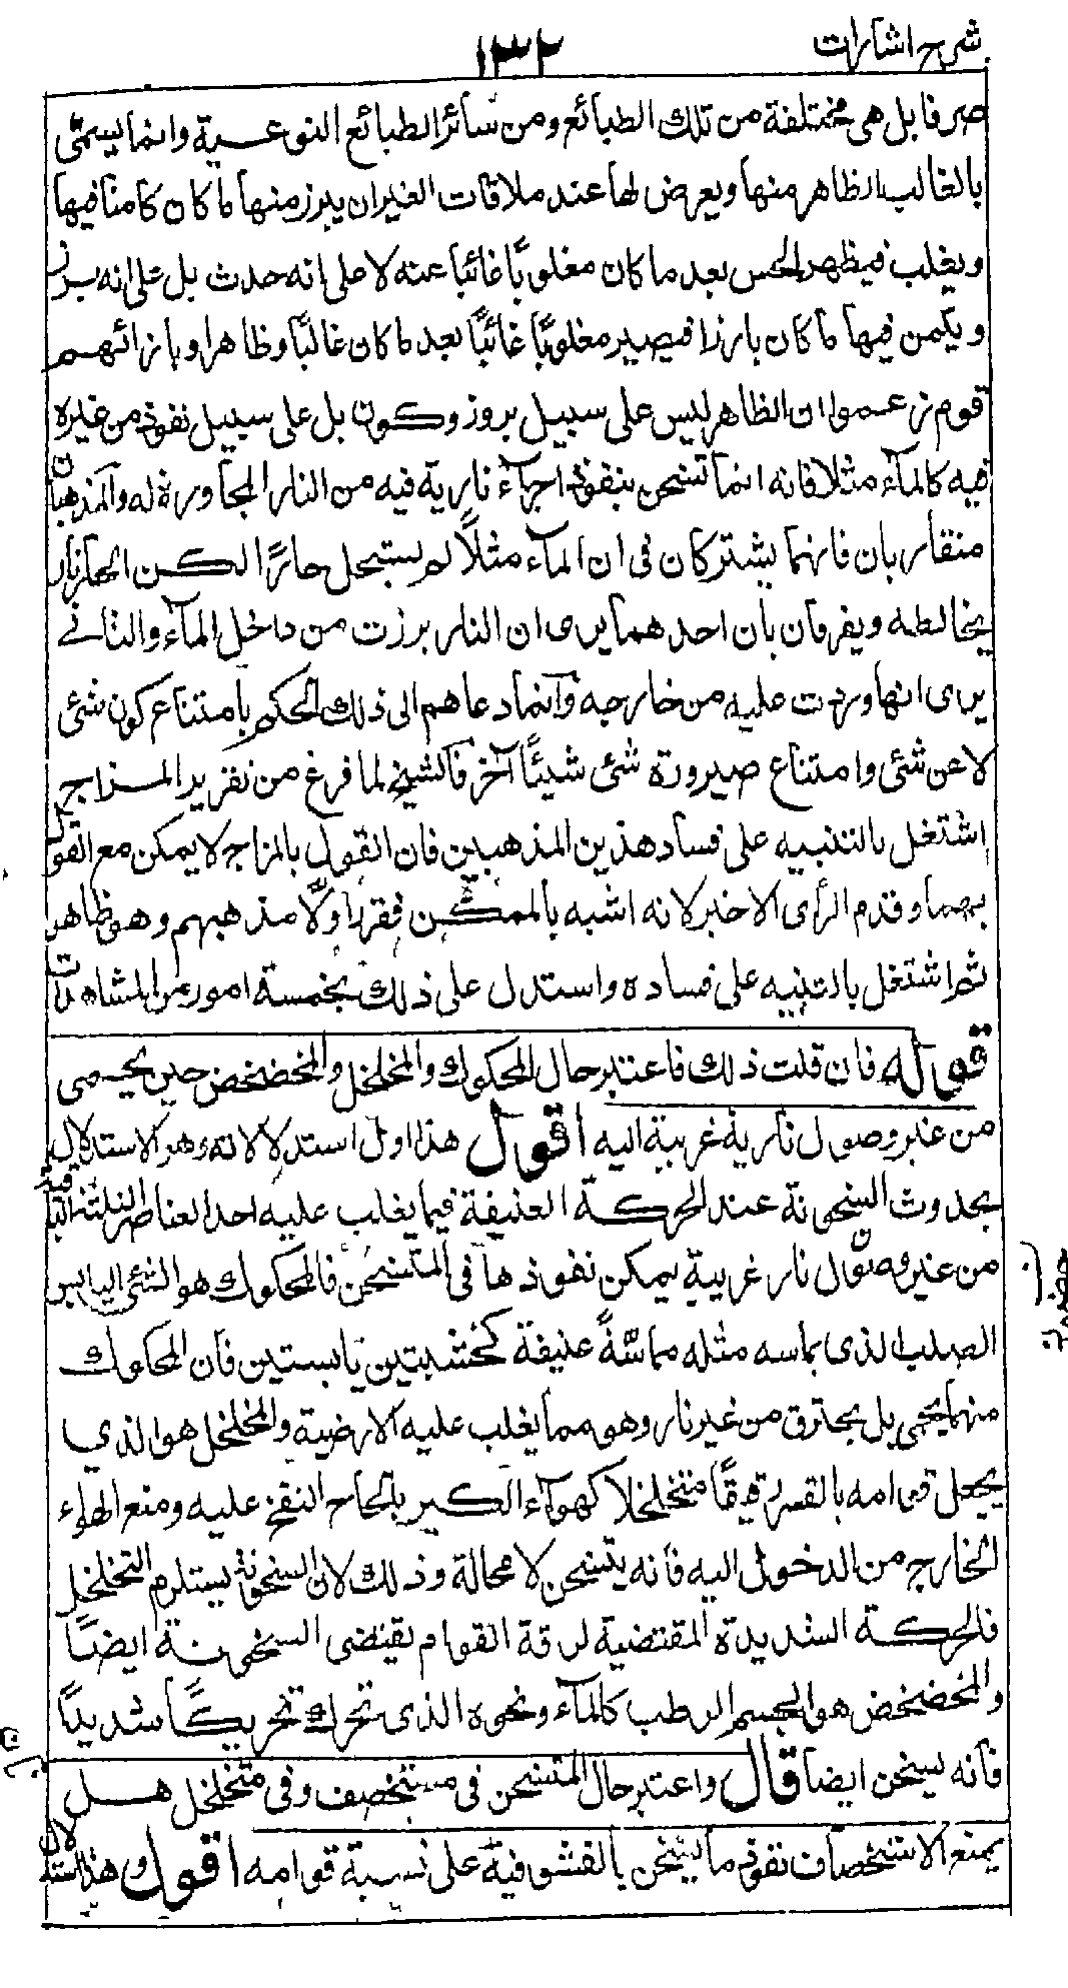 شرح اشارات
١٣٢
صرفا بل هى مختلفة من تلك الطبائع ومن سائر الطبائع النوعية وانما يسمّى
بالغالب الظاهر منها ويعرض لها عند ملاقات الغير ان يبرز منها ما كان كامنا فيها
ويغلب فيظهر للحس بعد ما كان مغلوبًا غائبًا عنه لا على انه حدث بل على انه برز
ويكمن فيها ما كان بارزا فيصير مغلوبًا غائبًا بعد ما كان غالبًا وظاهرا وبازائهم
قوم زعموا ان الظاهر ليس على سبيل بروز وكمون بل على سبيل نفوذ من غيره
فيه كالمآء مثلا فانه انما تسخن بنفوذ اجزآء نارية فيه من النار المجاورة له والمذهبان
متقاربان فانهما يشتركان فى ان المآء مثلًا لم يستحل حارًا لكن الحار نار
يخالطه ويفرقان بان احدهما يرى ان النار برزت من داخل المآء والثانے
يرى انها وردت عليه من خارجه وانما دعاهم الى ذلك الحكم بامتناع كون شئ
لا عن شئ وامتناع صيرورة شئ شيئًا آخر فالشيخ لما فرغ من تقرير المزاج
اشتغل بالتنبيه على فساد هذين المذهبين فان القول بالمزاج لا يمكن مع القول
بهما وقدم الرأى الاخير لانه اشبه بالممكن فقرر اولًا مذهبهم وهو ظاهر
ثم اشتغل بالتنبيه على فساده واستدل على ذلك بخمسة امور من المشاهدات
قوله فان قلت ذلك فاعتبر حال المحكوك والمخلخل والمخضخض حين يحمى
من غير وصول نارية غريبة اليه اقول هذا اول استدلالاته وهو الاستدلال
بحدوث السخونة عند الحركة العنيفة فيما يغلب عليه احد العناصر الثلثة الباقية
من غير وصول نار غريبة يمكن نفوذها فى المتسخن فالمحكوك هو الشئ اليابس
الصلب الذى يماسه مثله مماسّةً عنيفة كخشبتين يابستين فان المحكوك
منهما يحمى بل يحترق من غير نار وهو مما يغلب عليه الارضية والمخلخل هو الذي
يجعل قوامه بالقسر رقيقًا متخلخلا كهوآء الكير بالحاح النفخ عليه ومنع الهواء
الخارج من الدخول اليه فانه يتسخن لا محالة وذلك لان السخونة يستلزم التخلخل
فالحركة الشديدة المقتضية لرقة القوام يقتضى السخونة ايضًا
والمخضخض هو الجسم الرطب كالمآء ونحوه الذى تحرك تحريكًا شديدًا
فانه يسخن ايضا قال واعتبر حال المتسخن فى مستخصف وفى متخلخل هل
يمنع الاستخصاف نفوذ ما يسخن بالفشو فيه على نسبة قوامه اقول وهذا استدلال